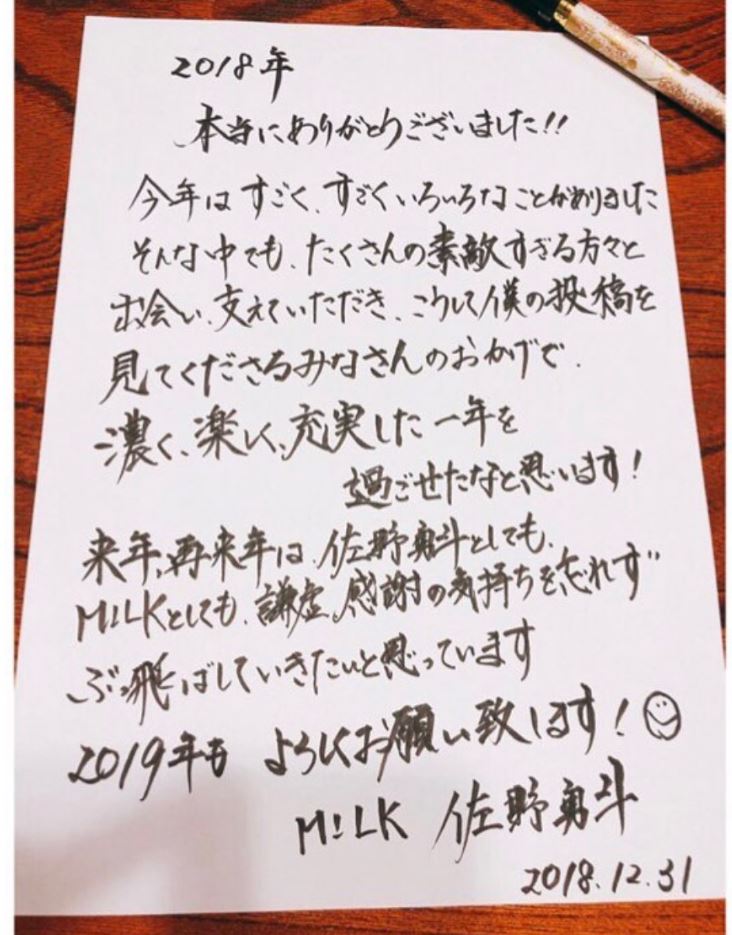 2018年
本当にありがとうございました!!
今年はすごく、すごくいろいろなことがありました
そんな中でも、たくさんの素敵すぎる方々と
出会い、支えていただき、こうして僕の投稿を
見てくださるみなさんのおかげで、
濃く、楽しく、充実した一年を
過ごせたなと思います!
来年、再来年は、佐野勇斗としても、
M!LKとしても、謙虚、感謝の気持ちを忘れず
ぶっ飛ばしていきたいと思っています
2019年も よろしくお願い致します!
M!LK 佐野勇斗
2018.12.31